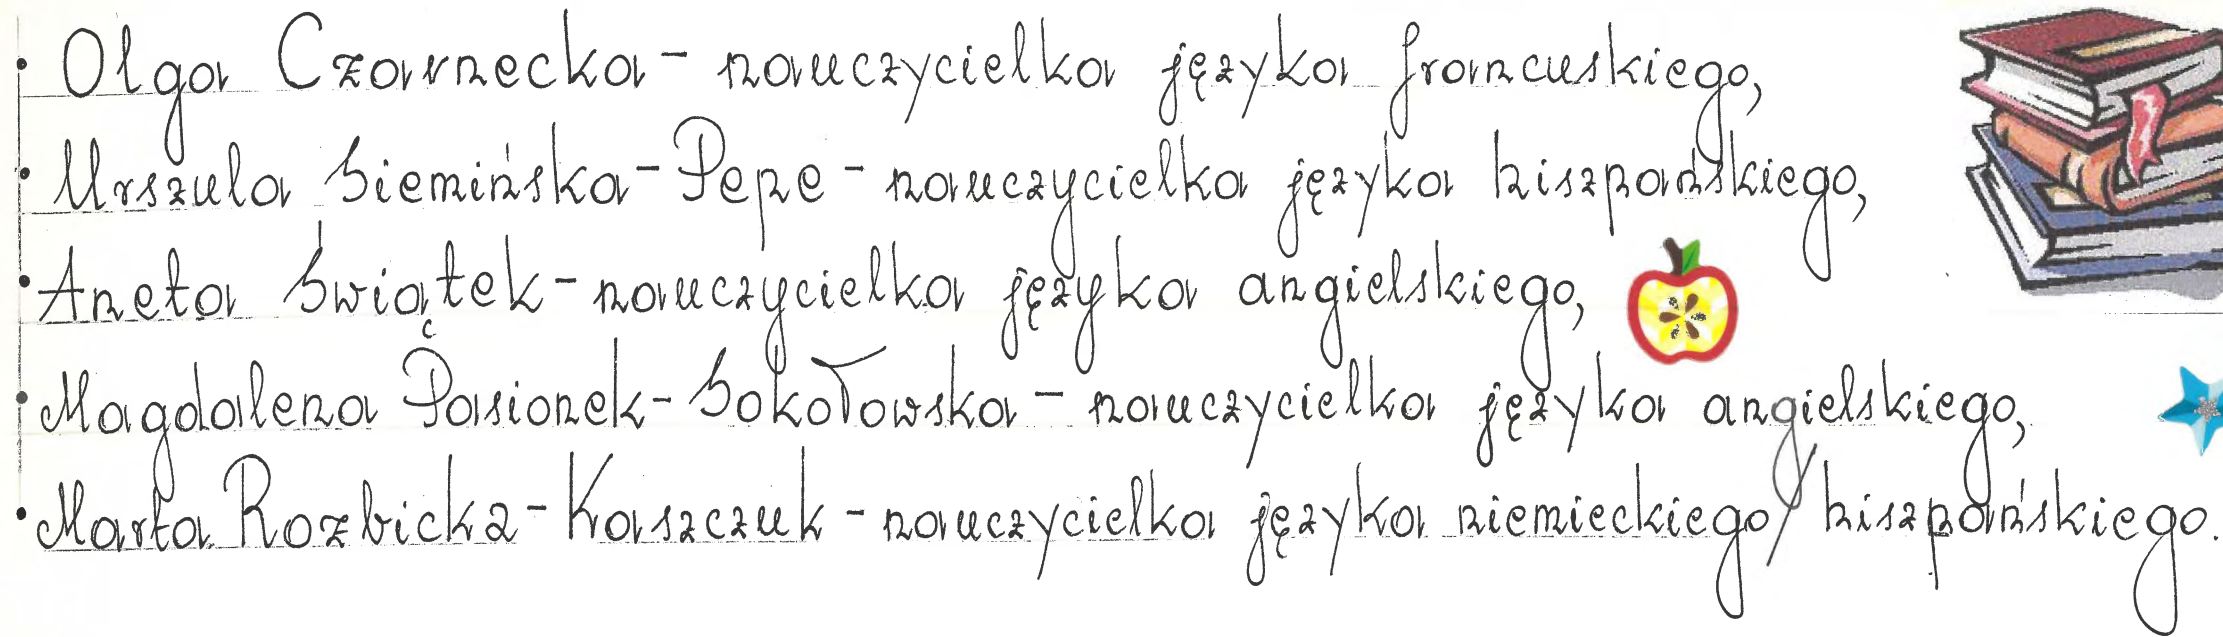 • Olga Czarnecka - nauczycielka języka francuskiego,
• Urszula Siemińska - Pepe - nauczycielka języka hiszpańskiego,
• Aneta Świątek - nauczycielka języka angielskiego,
• Magdalena Pasionek - Sokołowska - nauczycielka języka angielskiego,
• Marta Rozbicka - Kaszczuk - nauczycielka języka niemieckiego/hiszpańskiego.